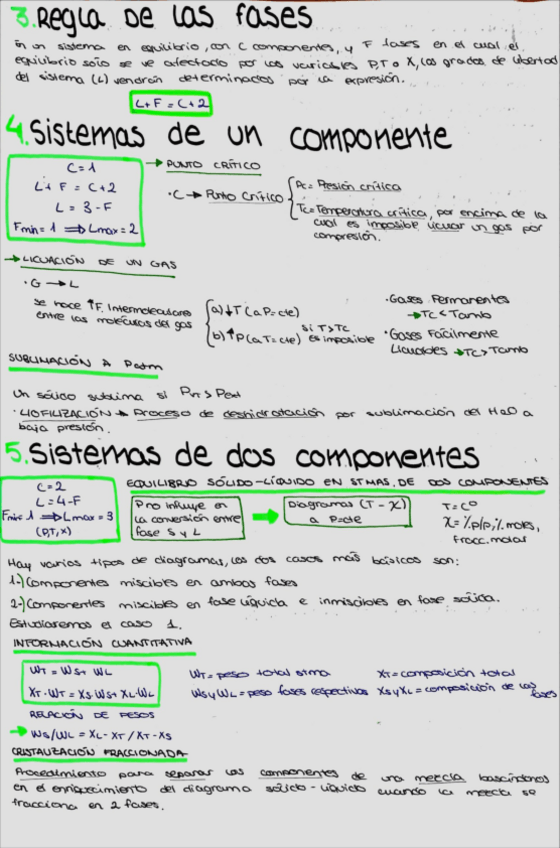 3. Regla de las fases
En un sistema en equilibrio, con C componentes, y F fases en el cual el
equilibrio solo se ve afectado por las variables P,T o X, los grados de libertad
del sistema (L) vendrán determinados por la expresión.
L+F = C+2
4. Sistemas de un componente
C=1
L+F = C+2
L = 3-F
Fmin = 1 ⟹ Lmax = 2
→ PUNTO CRÍTICO
· C → Punto Crítico
Pc = Presión crítica
Tc = Temperatura crítica, por encima de la
cual es imposible licuar un gas por
compresión.
→ LICUACIÓN DE UN GAS
· G → L
se hace ↑F. Intermoleculares
entre las moléculas del gas
a) ↓T (a P=cte)
b) ↑P (a T=cte) si T>Tc es imposible
· Gases Permanentes
→ Tc < Tamb
· Gases Fácilmente
Licuables → Tc > Tamb
SUBLIMACIÓN A Patm
Un sólido sublima si P > Pext
· LIOFILIZACIÓN → Proceso de deshidratación por sublimación del H2O a
baja presión.
5. Sistemas de dos componentes
C=2
L=4-F
Fmin=1 ⟹ Lmax=3
(P,T,X)
EQUILIBRIO SÓLIDO-LÍQUIDO EN STMAS. DE DOS COMPONENTES
P no influye en
la conversión entre
fase S y L
→
Diagramas (T - X)
a P=cte
T = Cº
X = % p/p, % moles,
fracc. molar
Hay varios tipos de diagramas, los dos casos más básicos son:
1-) Componentes miscibles en ambas fases
2-) Componentes miscibles en fase líquida e inmiscibles en fase sólida.
Estudiaremos el caso 1.
INFORMACIÓN CUANTITATIVA
WT = WS + WL
XT·WT = XS·WS + XL·WL
WT = peso total stma
WS y WL = peso fases respectivas
XT = composición total
XS y XL = composición de las fases
RELACIÓN DE PESOS
→ WS/WL = XL - XT / XT - XS
CRISTALIZACIÓN FRACCIONADA
Procedimiento para separar los componentes de una mezcla basándonos
en el enriquecimiento del diagrama sólido-líquido cuando la mezcla se
fracciona en 2 fases.